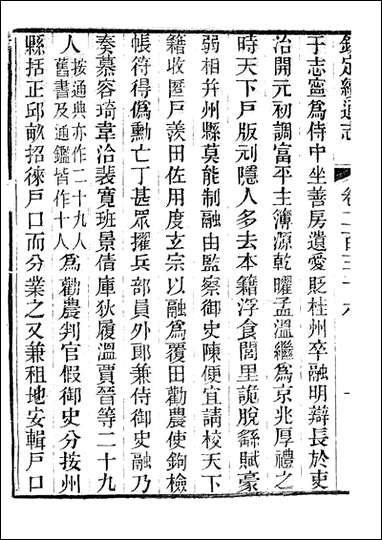 欽定續通志 卷二百三十六
于志寧為侍中坐善房遺愛貶杜州卒融明辯長於吏
治開元初調富平主簿源乾曜孟溫繼為京兆厚禮之
時天下戶版刓隱人多去本籍浮食閭里詭脫繇賦豪
弱相幷州縣莫能制融由監察御史陳便宜請校天下
籍收匿戶羨田佐用度玄宗以融為覆田勸農使鉤檢
帳符得偽勳亡丁甚眾擢兵部員外郎兼侍御史融乃
奏慕容琦韋洽裴寬班景倩庫狄履溫賈晉等二十九
人按通典亦作二十九人舊書及通鑑皆作十人為勸農判官假御史分按州
縣括正邱畝招徠戶口而分業之又兼租地安輯戶口